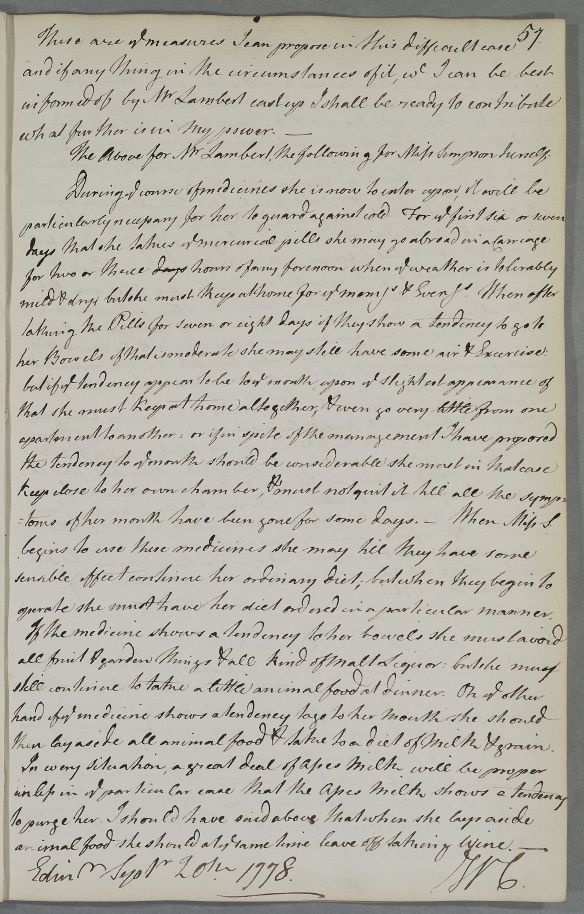 57.
These are ye measures I can propose in this difficult case
and if any thing in the circumstances of it, wc I can be best
informed of by Mr Lambert cast up I shall be ready to contribute
what further is in my power. —
The Above for Mr Lambert, the following for Miss Simpson hirself.
During ye course of medicines she is now to enter upon it will be
particularly necessary for her to guard against cold. For ye first six or seven
days that she takes ye mercurial pills she may go abroad in a Carriage
for two or three days hours of any forenoon when ye weather is tolerably
mild & dry; but she must keep at home for ye morngs & Evengs. When after
taking the Pills for seven or eight days if they show a tendency to go to
her Bowels if that is moderate she may still have some air & Exercise:
but if ye tendency appear to be to ye mouth upon ye slightest appearance of
that she must keep at home altogether, & even go very little from one
apartment to another: or if in spite of the management I have proposed
the tendency to ye mouth should be considerable she must in that case
keep close to her own chamber, & must not quit it till all the symp=
=toms of her mouth have been gone for some days. — When Miss S.
begins to use these medicines she may till they have some
sensible effect continue her ordinary diet, but when they begin to
operate she must have her diet ordered in a particular manner.
If the medicine shows a tendency to her bowels she must avoid
all fruit & garden things & all kind of Malt Liquor: but she may
still continue to take a little animal food at dinner. On ye other
hand if ye medicine shows a tendency to go to her mouth she should
then lay aside all animal food & take to a diet of Milk & grain.
In every situation, a great deal of Asses Milk will be proper
unless in ye particular case that the Asses Milk shows a tendency
to purge her. I should have said above that when she lays aside
animal food she should at ye same time leave off taking Wine. —
Edinr Septr 20th 1778. W C.